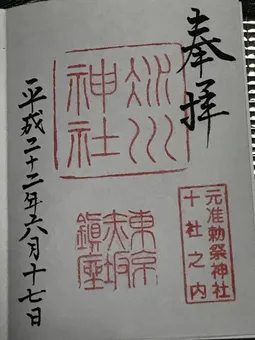 奉拝
元准勅祭神社
十社之内
氷川
神社
東京
赤坂
鎭座
平成二十二年六月十七日